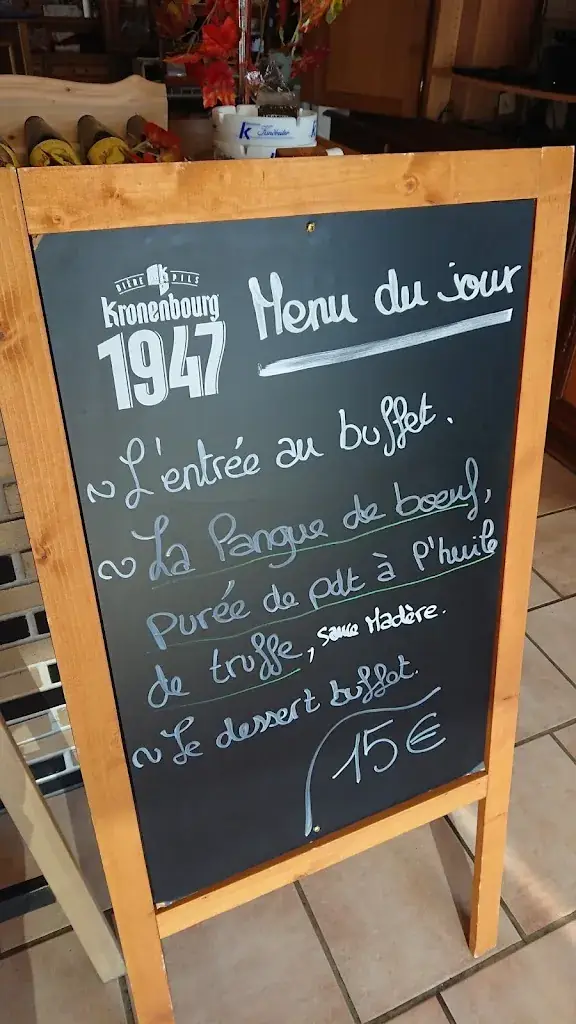 BIÈRE PILS
Kronenbourg
1947
Menu du jour
~ L'entrée au buffet.
~ La langue de boeuf,
purée de pdt à l'huile
de truffe, sauce Madère.
~ Le dessert buffet.
15€